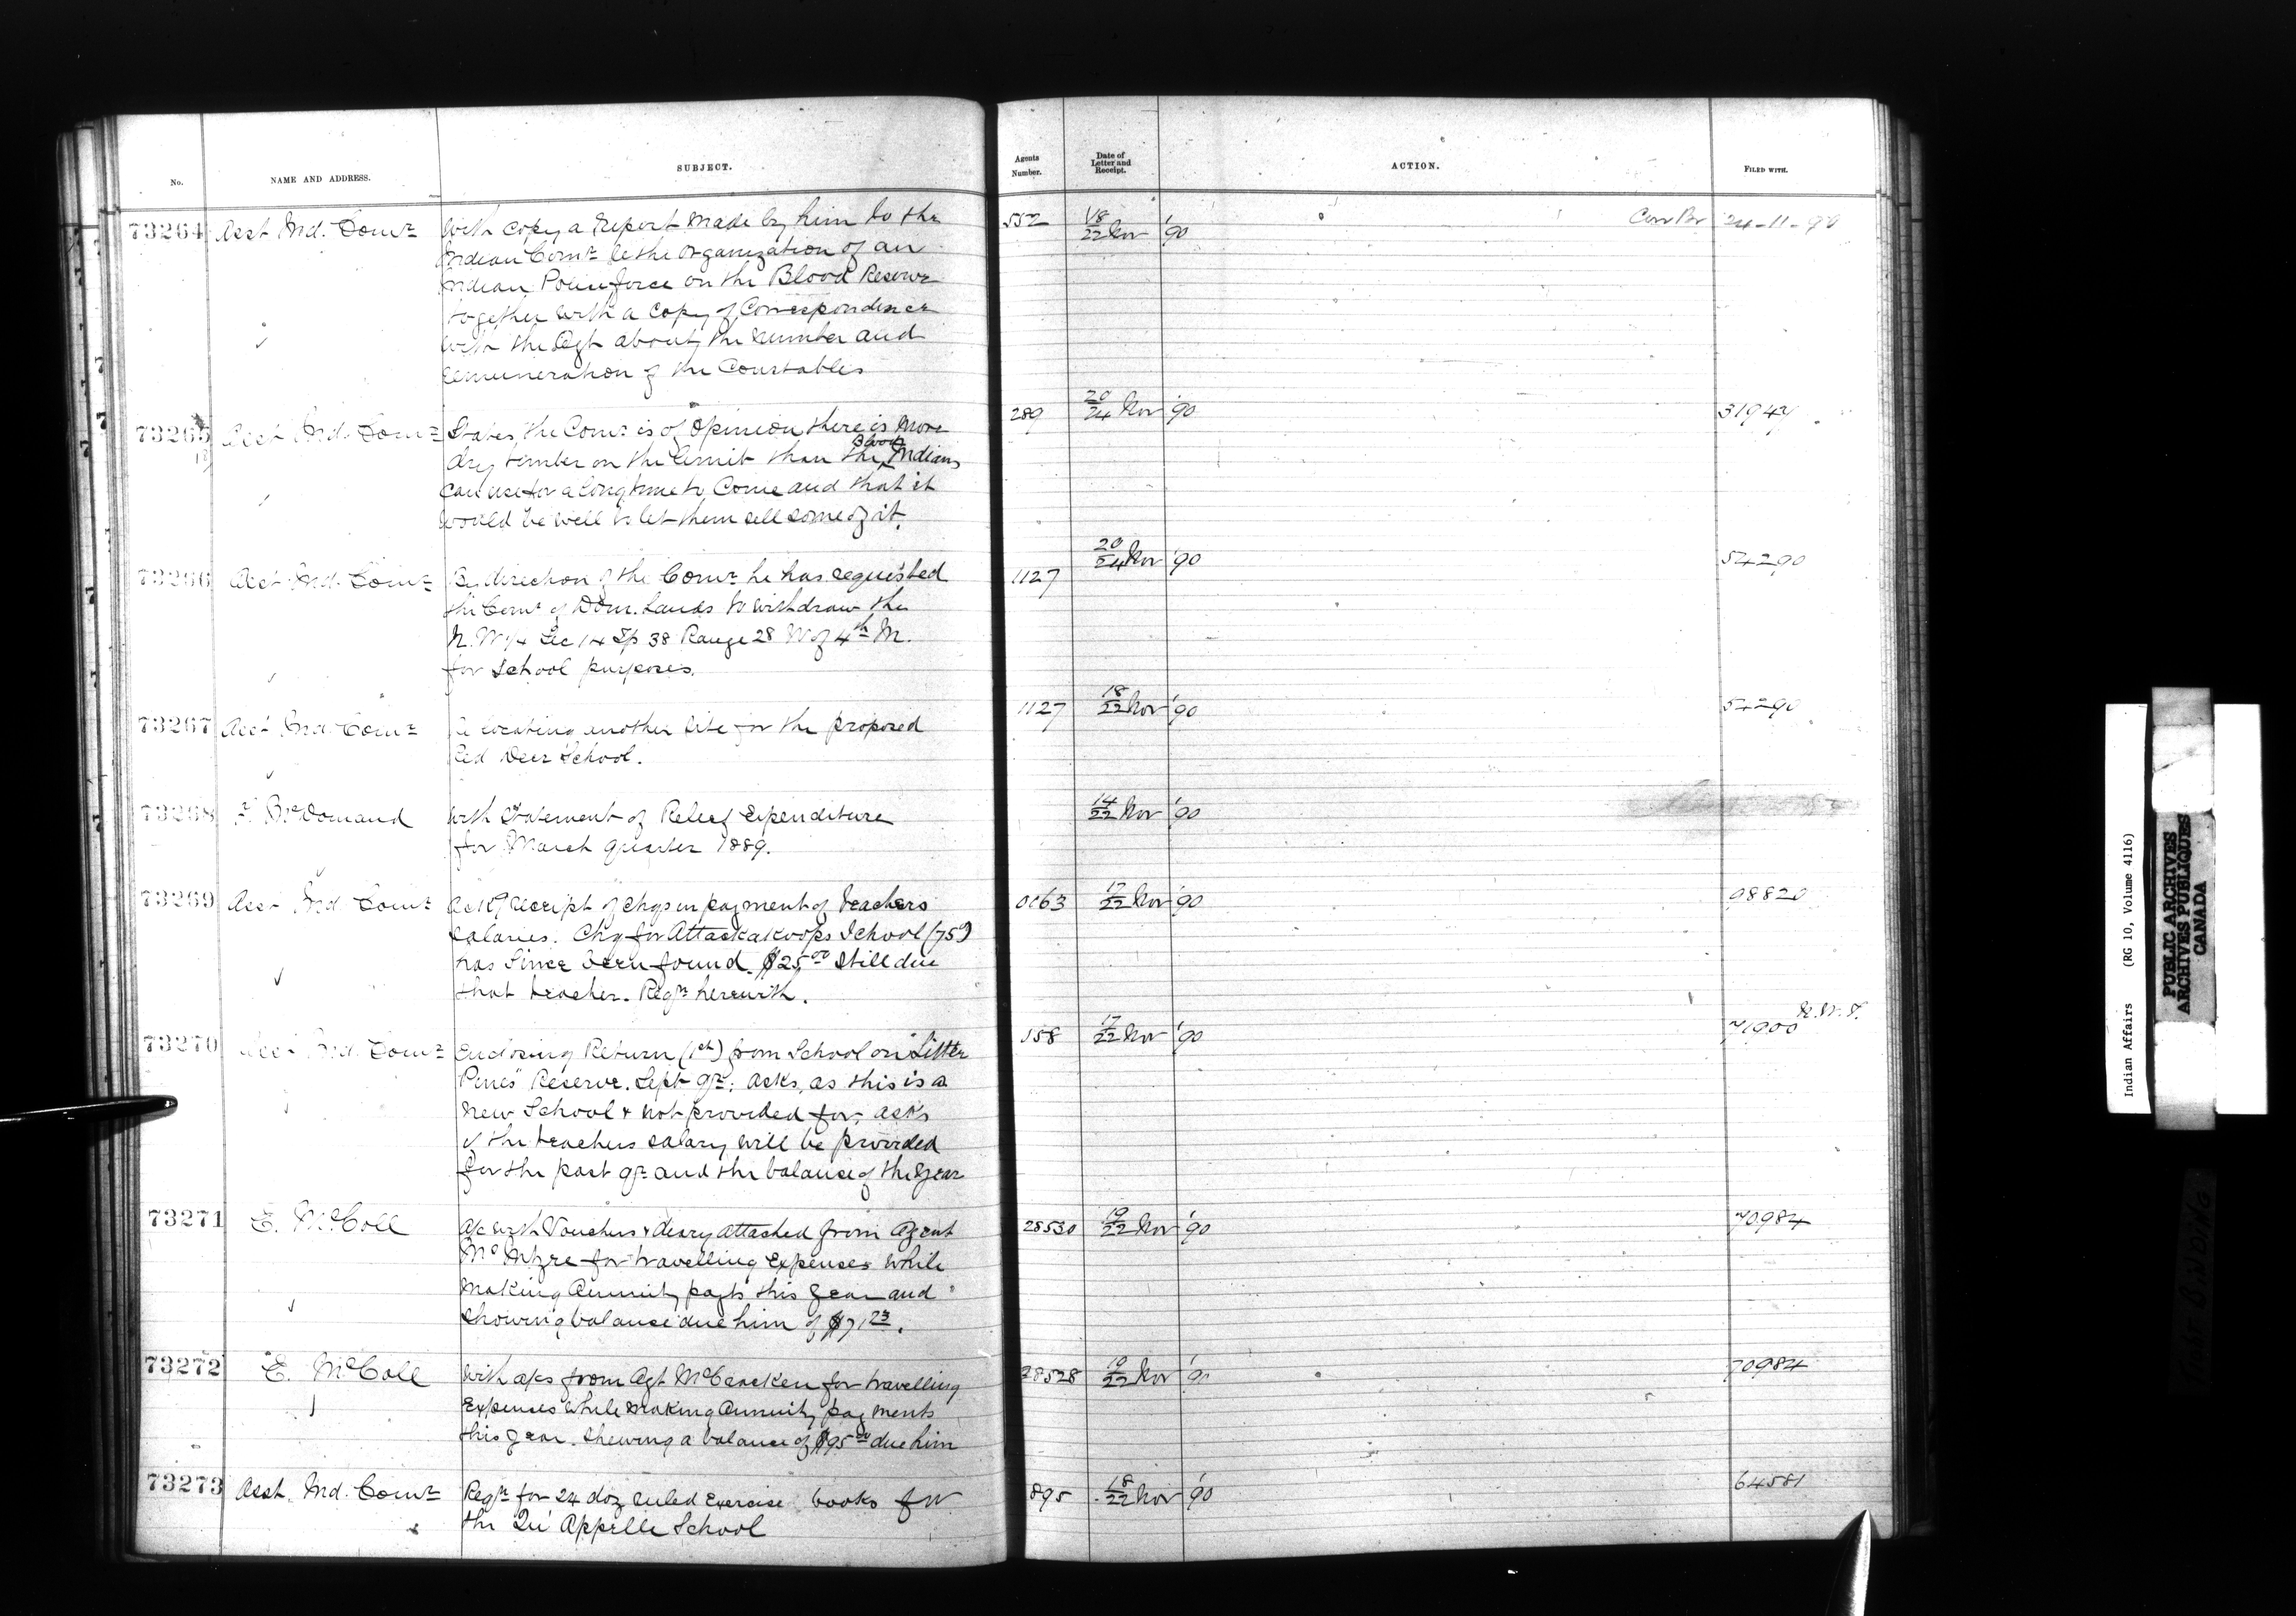 No.
NAME AND ADDRESS.
SUBJECT.
Agents Number.
Date of Letter and Receipt.
ACTION.
FILED WITH.
73264 Asst Ind. Comr With copy a report made by him to the 552 18/22 Nov '90 Corr Br 24-11-90
Indian Comr re the organization of an
Indian Police force on the Blood Reserve
together with a copy of Correspondence
with the Agt about the number and
remuneration of the Constables
73265 Asst Ind. Comr States the Comr is of opinion there is more 289 20/24 Nov '90
Blood
dry timber on the limit than the Indians
can use for a long time to come and that it
would be well to let them sell some of it.
73266 Asst Ind. Comr By direction of the Comr he has requested 1127 20/24 Nov '90 54290
the Comr of Dom. Lands to withdraw the
N.W 1/4 Sec 14 Tp 38 Range 28 W of 4th M.
for School purposes.
73267 Asst Ind Comr Re locating another site for the proposed 1127 18/22 Nov '90 54290
Red Deer School.
73268 With Statement of Relief Expenditure 14/22 Nov '90
for March quarter 1889.
73269 Asst Ind Comr receipt of chqs in payment of teachers 17/22 Nov '90
salaries. Chq for Attackakoops School (75)
has since been found. $25.00 Still due
that teacher. Reqn herewith.
73270 Asst Ind. Comr Enclosing Return (1st) from School on "Little 158 17/22 Nov '90 71900 N.W.T.
Pines" Reserve. Sept qr. asks, as this is a
new School & not provided for, asks
if the teachers salary will be provided
for the past qr and the balance of the year
73271 E. McColl a/c with Vouchers & diary attached from Agent 28530 19/22 Nov '90 70984
McIntyre for travelling Expenses while
making Annuity payts this year and
showing balance due him of $71.23.
73272 E. McColl With a/cs from Agt McCracken for travelling 28528 19/22 Nov '90 70984
Expenses while making Annuity payments
this year. Shewing a balance of $95.00 due him
73273 Asst. Ind. Comr Reqn for 24 doz ruled exercise books for 895 18/22 Nov '90 64581
the Qu'Appelle School
Indian Affairs (RG 10, Volume 4116)
PUBLIC ARCHIVES
ARCHIVES PUBLIQUES
CANADA